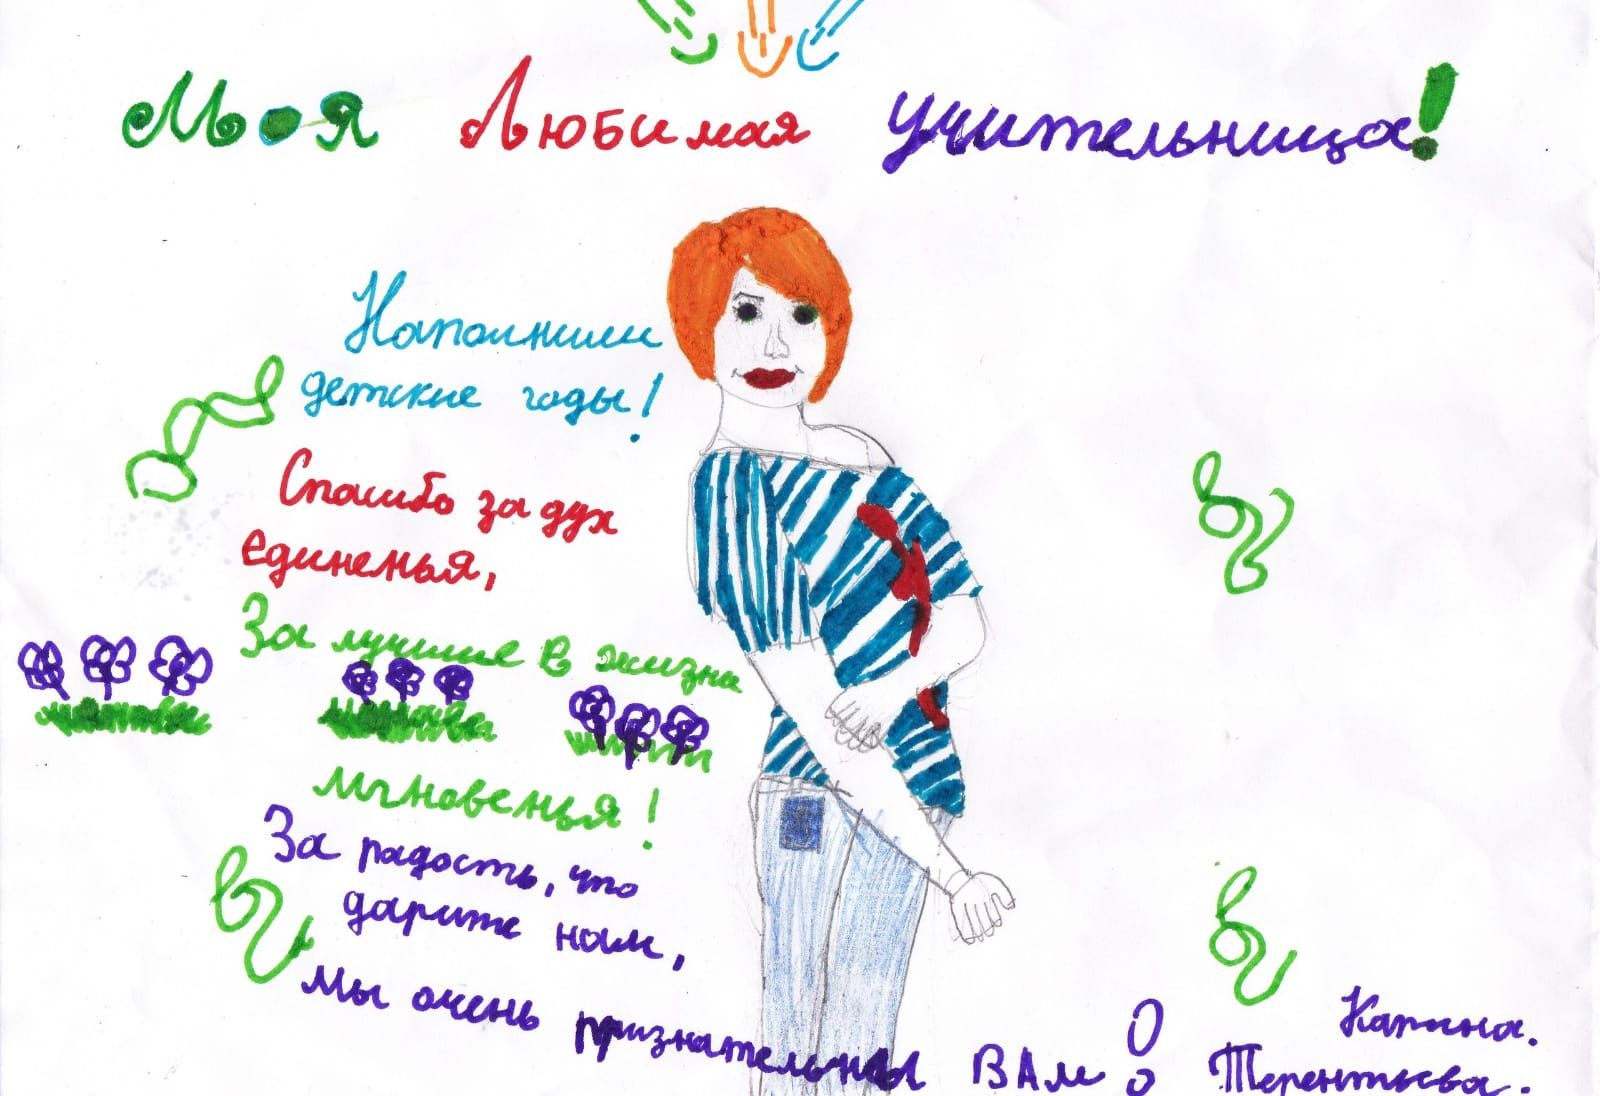 Моя Любимая учительница!
Наполнили
детские годы!
Спасибо за дух
единенья,
За лучшие в жизни
мгновенья!
За радость, что
дарите нам,
Мы очень признательны ВАМ!
Карина.
Терентьева.